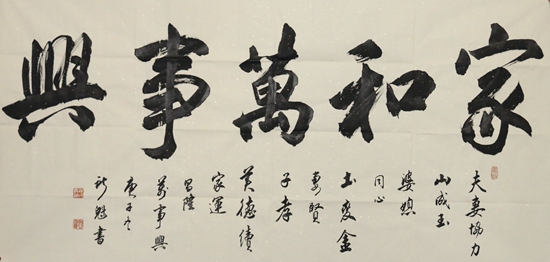 家和萬事興
夫妻協力
山成玉
婆媳
同心
土變金
妻賢
子孝
英德儔
家運
昌隆
萬事興
庚子冬
魁書